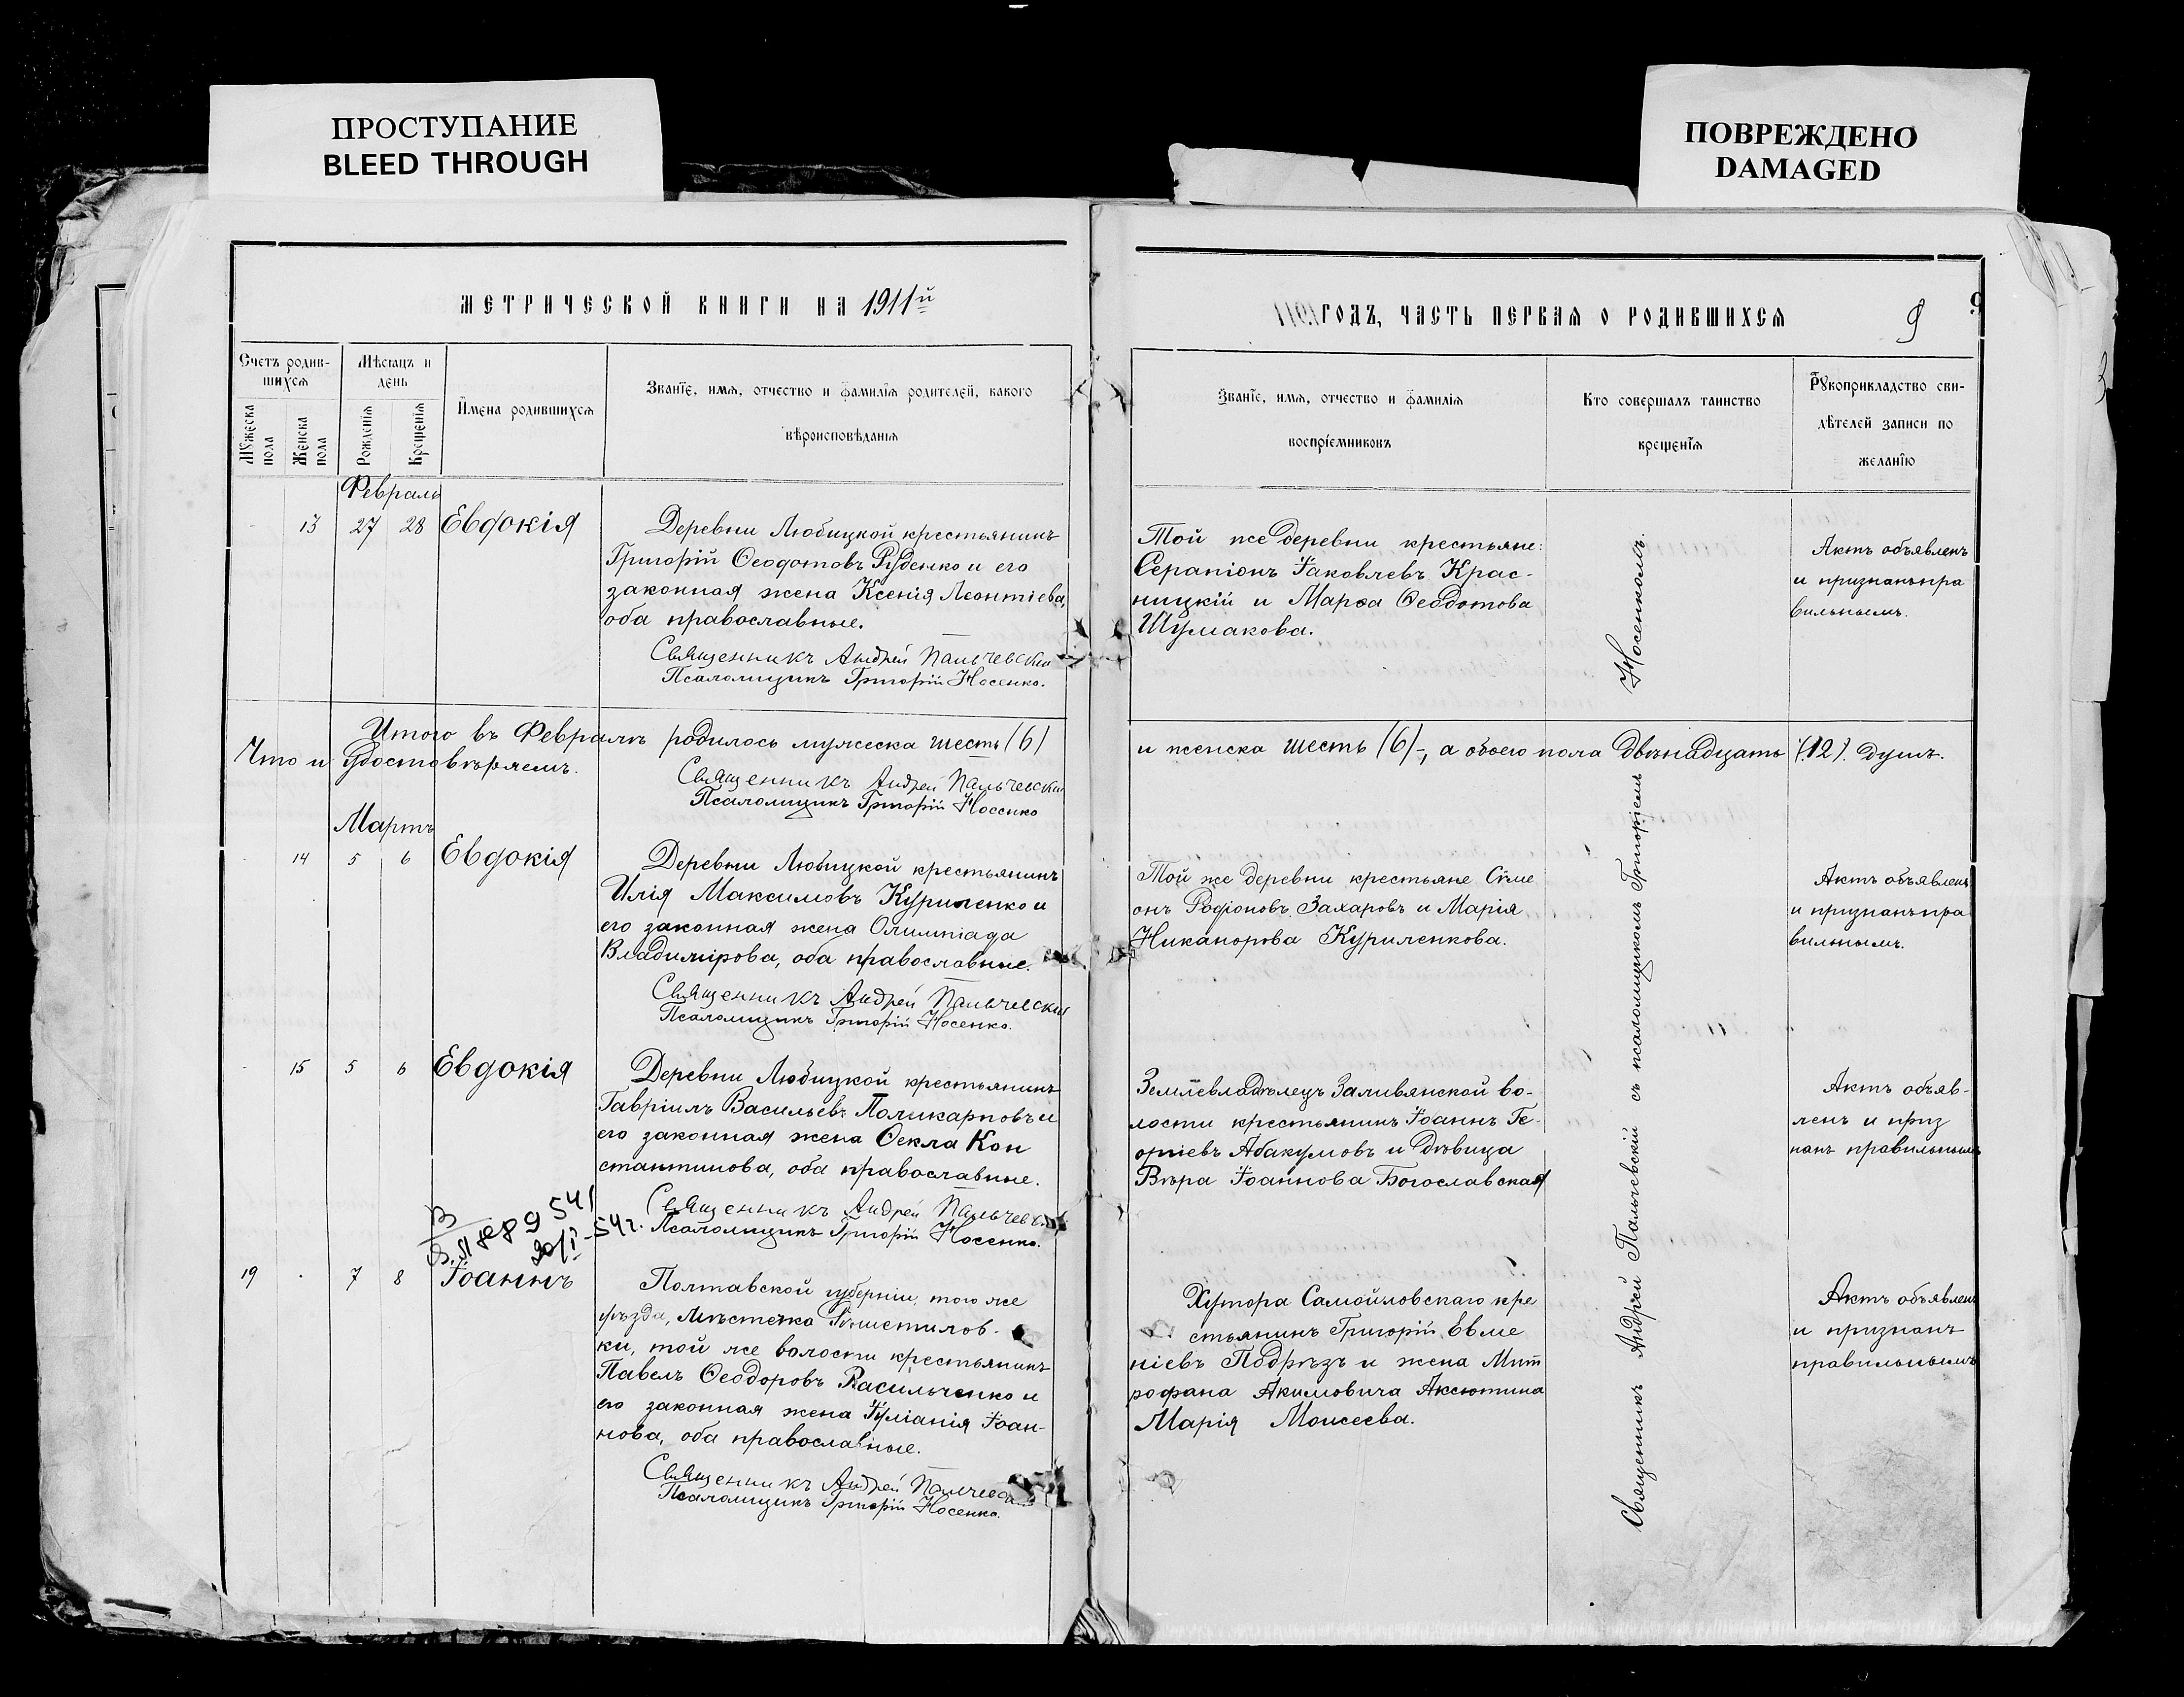 ПРОСТУПАНИЕ
BLEED THROUGH
ПОВРЕЖДЕНО
DAMAGED
МЕТРИЧЕСКОЙ КНИГИ НА 1911й
Счетъ родив-
шихся
Мужеска пола
Женска пола
Мѣсяцъ и
день
Рожденія
Крещенія
Имена родившихся
Званіе, имя, отчество и фамилія родителей, какого
вѣроисповѣданія
Февраль
13 27 28 Евдокія
Деревни Любицкой крестьянинъ
Григорій Ѳеодотовъ Руденко и его
законная жена Ксенія Леонтіева,
оба православные.
Священникъ Андрей Пальчевскій
Псаломщикъ Григорій Носенко.
Итого въ Февралѣ родилось мужеска шесть (6)
Что и удостовѣряемъ.
Священникъ Андрей Пальчевскій
Псаломщикъ Григорій Носенко
Мартъ
14 5 6 Евдокія
Деревни Любицкой крестьянинъ
Илія Максимовъ Куриленко и
его законная жена Олимпіада
Владимірова, оба православные.
Священникъ Андрей Пальчевскій
Псаломщикъ Григорій Носенко.
15 5 6 Евдокія
Деревни Любицкой крестьянинъ
Гавріилъ Васильевъ Поликарповъ и
его законная жена Ѳекла Кон
стантинова, оба православные.
Священникъ Андрей Пальчевск
Псаломщикъ Григорій Носенко.
20/I-54г.
19 7 8 Іоаннъ
Полтавской губерніи, того же
уѣзда, мѣстечка Решетилов-
ки, той же волости крестьянинъ
Павелъ Ѳеодоровъ Васильченко и
его законная жена Іуліанія Іоан-
нова, оба православные.
Священникъ Андрей Пальчевскій
Псаломщикъ Григорій Носенко.
ГОДЪ, ЧАСТЬ ПЕРВАЯ О РОДИВШИХСЯ
9
9
Званіе, имя, отчество и фамилія
воспріемниковъ
Кто совершалъ таинство
крещенія
Рукоприкладство сви-
дѣтелей записи по
желанію
Той же деревни крестьяне:
Серапіонъ Іаковлевъ Крас-
ницкій и Марѳа Ѳеодотова
Шумакова.
Актъ объявленъ
и признанъ пра
вильнымъ.
и женска шесть (6)-, а обоего пола двѣнадцать (12) душъ.
Той же деревни крестьяне Сѵме
онъ Родіоновъ Захаровъ и Марія
Никанорова Куриленкова.
Актъ объявленъ
и признанъ пра
вильнымъ.
Землевладѣлецъ Заливянской во-
лости крестьянинъ Іоаннъ Ге-
оргіевъ Абакумовъ и дѣвица
Вѣра Іоаннова Богославская
Актъ объяв-
ленъ и приз
нанъ правильнымъ
Хутора Самойловскаго кре
стьянинъ Григорій Евме
ніевъ Подрѣзъ и жена Мит
рофана Акимовича Аксютина
Марія Моисеева.
Актъ объявленъ
и признанъ
правильнымъ
Священникъ Андрей Пальчевскій съ псаломщикомъ Григоріемъ Носенкомъ.